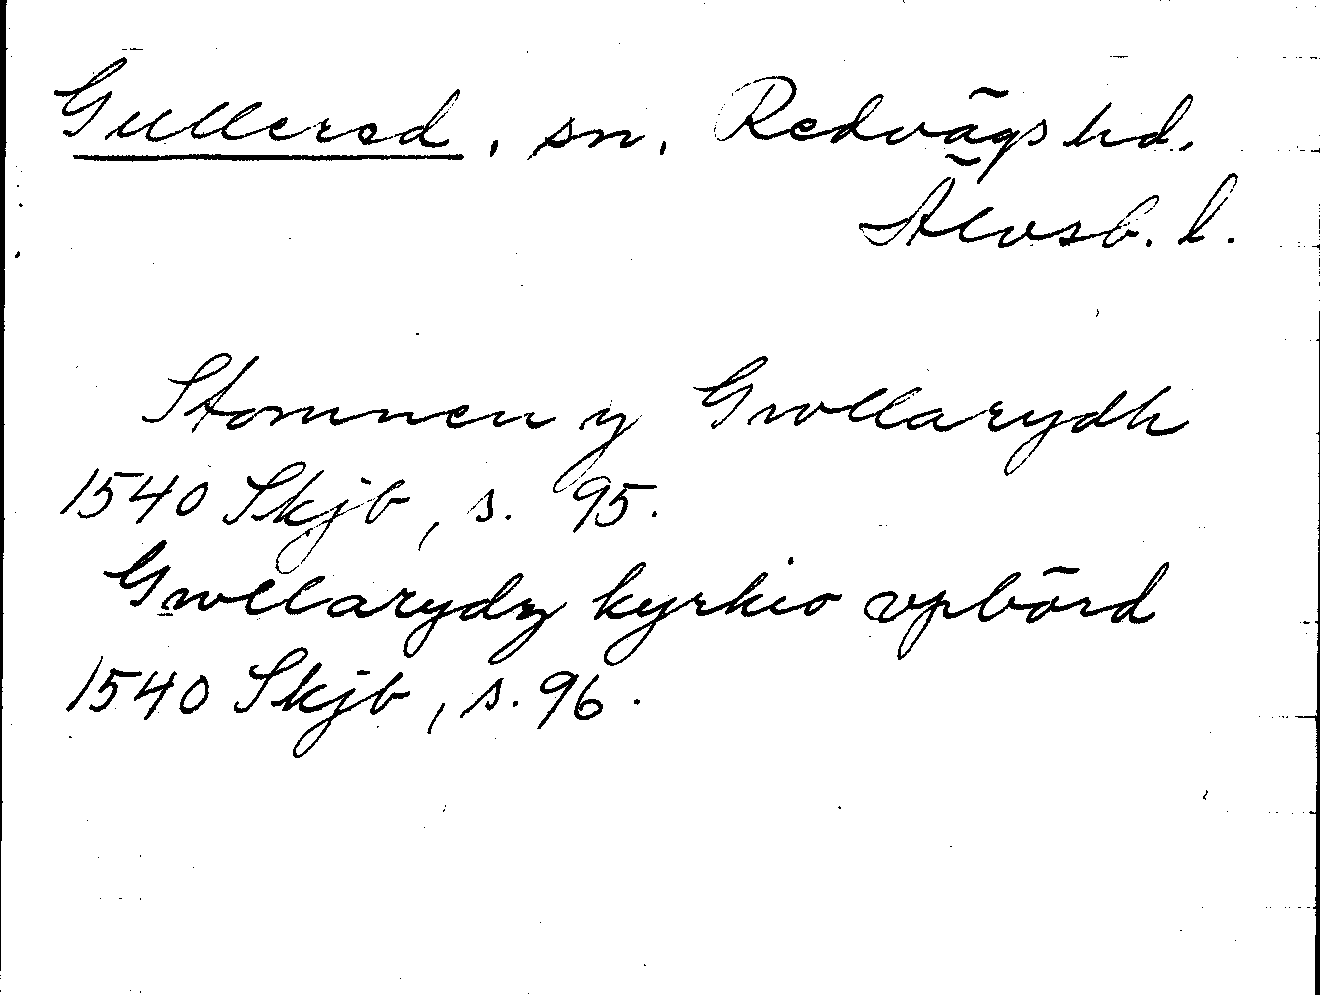 Gullered, sn, Redvägs hd.
Älvsb. l.
Stomnen y Gwllarydh
1540 Skjb, s. 95.
Gwllarydz kyrkio vpbörd
1540 Skjb, s. 96.